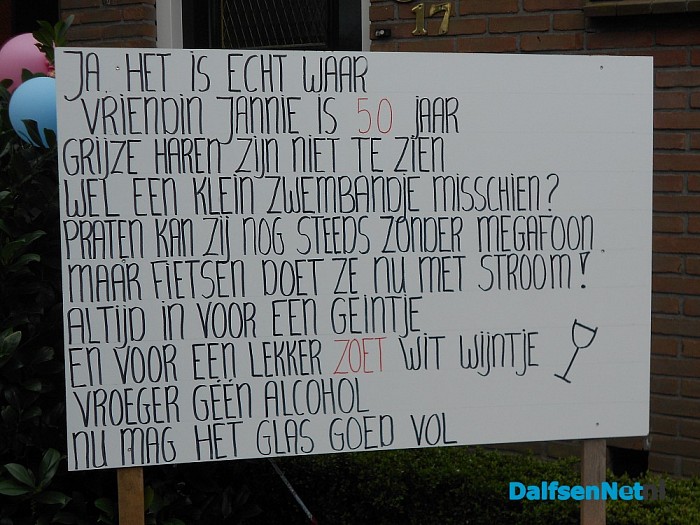 17
JA, HET IS ECHT WAAR
VRIENDIN JANNIE IS 50 JAAR
GRIJZE HAREN ZIJN NIET TE ZIEN
WEL EEN KLEIN ZWEMBANDJE MISSCHIEN?
PRATEN KAN ZIJ NOG STEEDS ZONDER MEGAFOON
MAAR FIETSEN DOET ZE NU MET STROOM!
ALTIJD IN VOOR EEN GEINTJE
EN VOOR EEN LEKKER ZOET WIT WIJNTJE
VROEGER GÉÉN ALCOHOL
NU MAG HET GLAS GOED VOL
DalfsenNet.nl